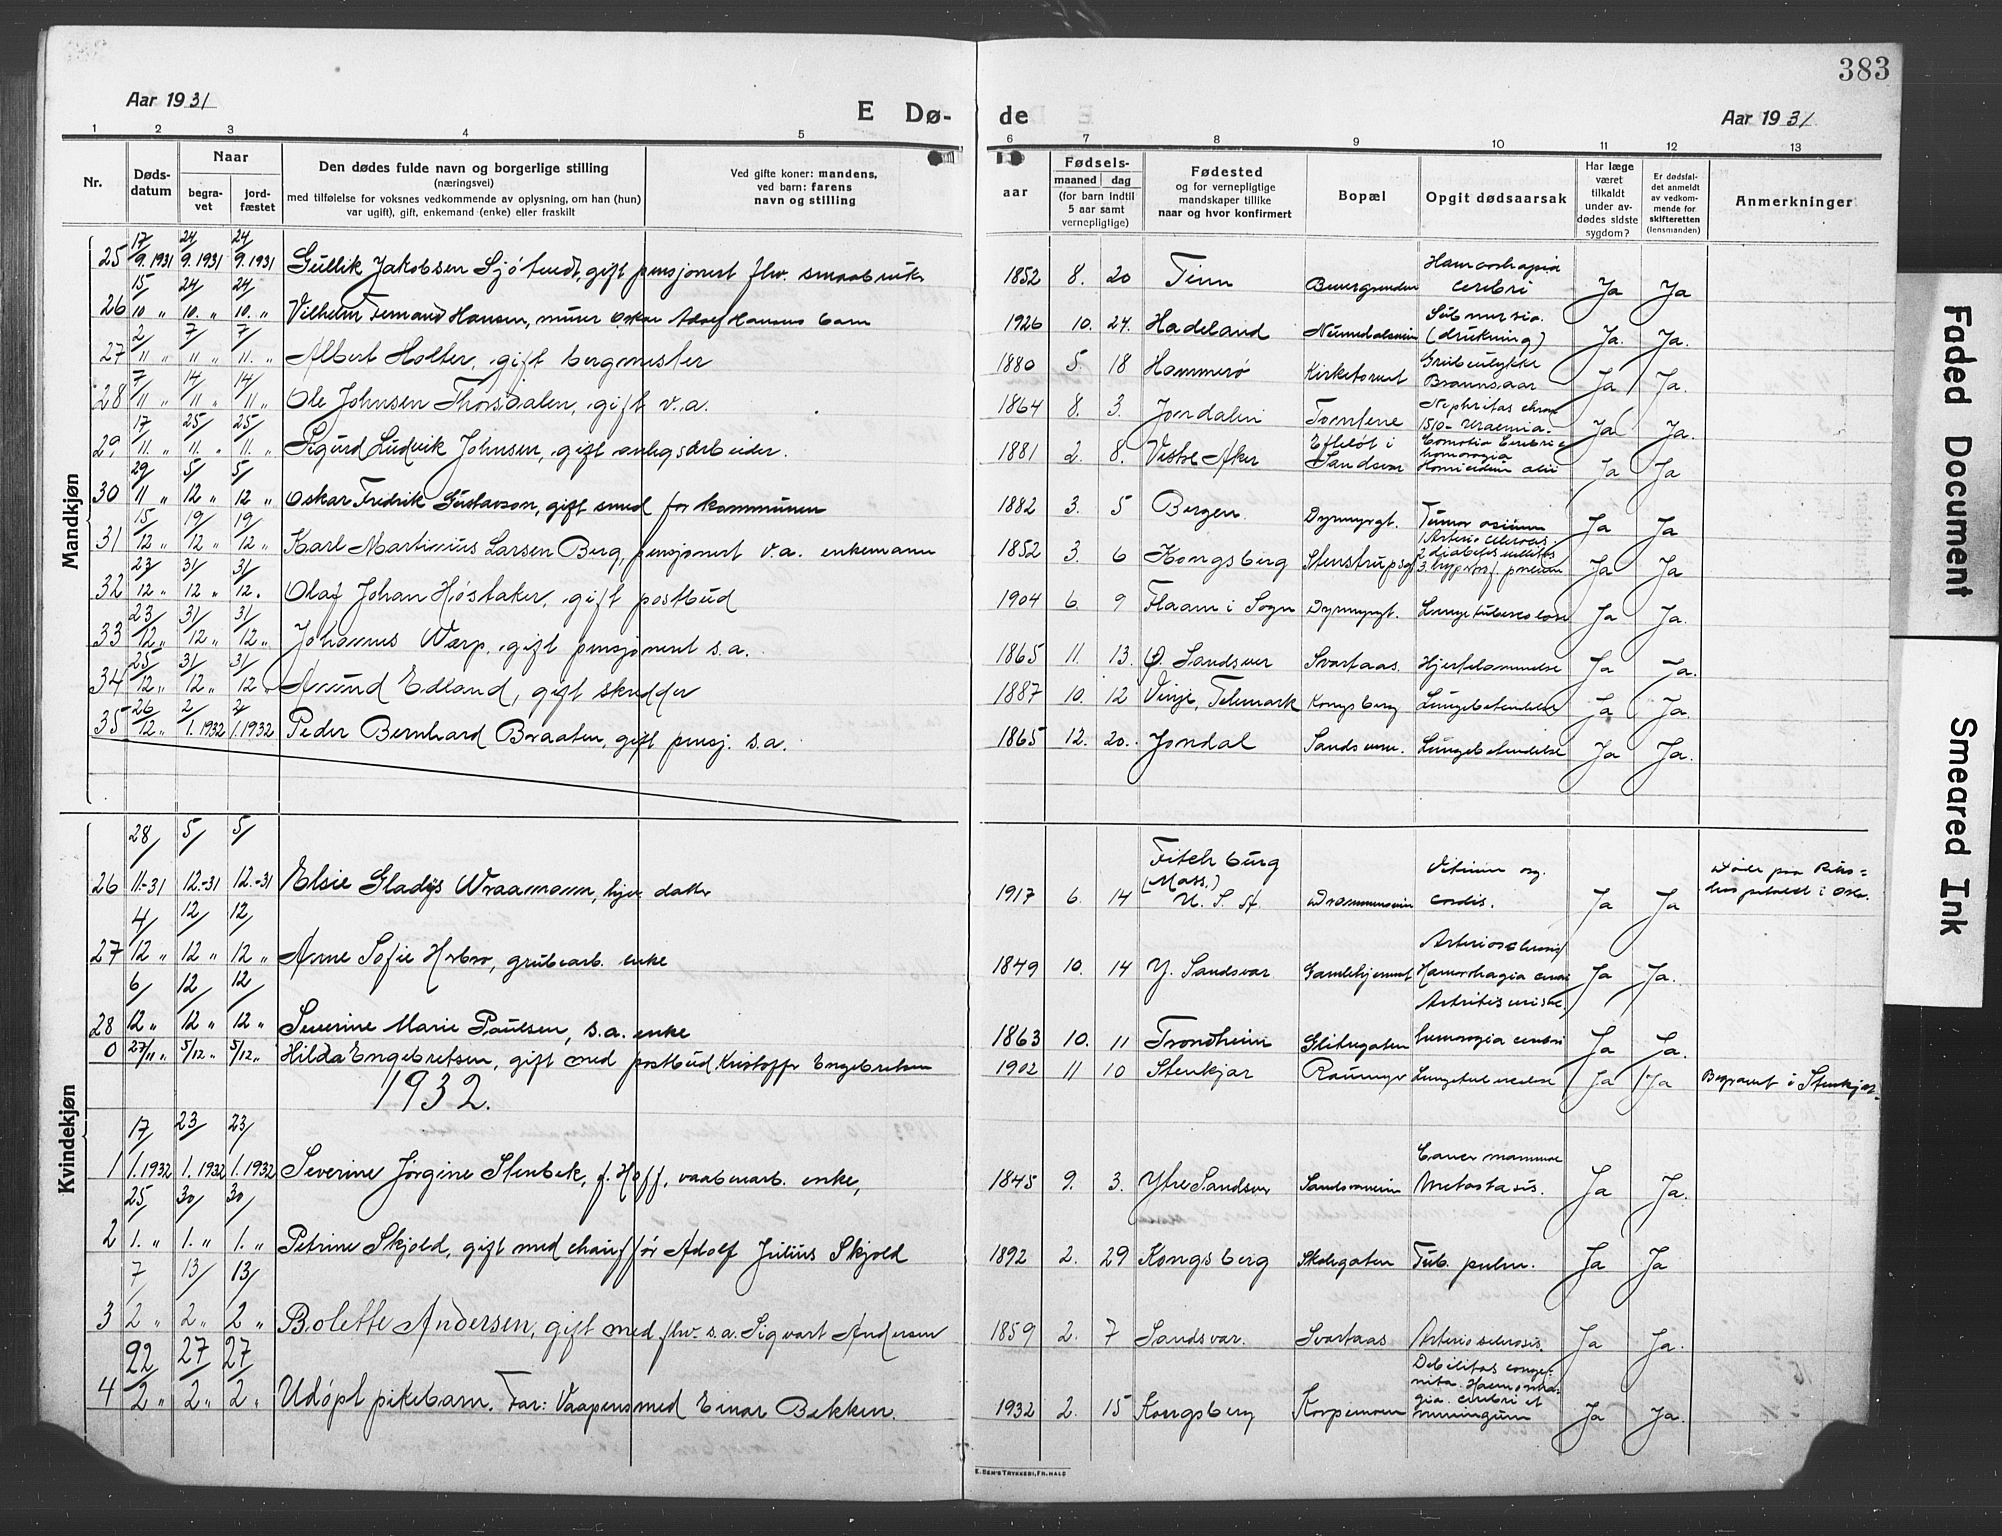 383
Aar 1931
E Dø-
de
Aar 1931
1 2 3 4 5 6 7 8 9 10 11 12 13
Nr.
Døds-
datum
Naar
begra-
vet
jord-
fæstet
Den dødes fulde navn og borgerlige stilling
(næringsvei)
med tilføielse for voksnes vedkommende av oplysning, om han (hun)
var ugift), gift, enkemand (enke) eller fraskilt
Ved gifte koner: mandens,
ved barn: farens
navn og stilling
aar
Fødsels-
maaned dag
(for barn indtil
5 aar samt
vernepligtige)
Fødested
og for vernepligtige
mandskaper tillike
naar og hvor konfirmert
Bopæl
Opgit dødsaarsak
Har læge
været
tilkaldt
under av-
dødes sidste
sygdom?
Er dødsfal-
det anmeldt
av vedkom-
mende for
skifteretten
(lensmanden)
Anmerkninger
Mandkjøn
25 17/9.1931 24/9.1931 24/9.1931 Gullik Jakobsen gift pensjonert fhv. smaabruker 1852 8. 20 Tinn cerebri Ja Ja
26 15/10 " 24/10. " 24/10. " Vilhelm Fernand Hansen, murer Oskar Adolf Hansens barn 1926 10. 24. Hadeland Numedalsveien Submersio. (drukning) Ja. Ja.
27 2/11 " 7/11 " 7/11. " Albert Holter, gift bergmester 1880 5. 18 Hammerø Kirketorvet Grubeulykke Brannsaar Ja Ja.
28 7/11 " 14/11 " 14/11 " Ole Johnsen Thorsdalen, gift v.a. 1864 8. 3. Jondalen Tomtene Nephritas chron 15/0- Uraemia. Ja Ja.
29. 17/11. " 25/11. " 25/11. " Sigurd Ludvik Johnsen, gift anlegsarbeider. 1881 2. 8. Vestre Aker Efteløt i Sandsvær Comotio Cerebri Ja Ja
30 29/11 " 5/12 " 5/12 " Oskar Fredrik Gustavson, gift smed for kommunen 1882 3. 5 Bergen. Dyrmyrgt. Tumor Ja Ja
31 15/12 " 19/12 " 19/12 " Karl Martinius Larsen Berg, pensjonert v.a. enkemann 1852 3. 6 Kongsberg Stenstrupsgt Ja Ja
32 23/12 " 31/12 " 31/12. Olaf Johan Høstaker, gift postbud 1904 6. 9 Flaam i Sogn Dyrmyrgt. Lungetuberculose Ja Ja.
33 23/12 " 31/12 " 31/12 " Johannes Warp, gift pensjonert s.a. 1865 11. 13. Ø. Sandsver Svartaas. Hjertelammelse Ja Ja.
34 25/12 " 31/12 " 31/12 " Amund Edland, gift skredder 1887 10. 12 Vinje, Telemark Kongsberg Lungebetendelse Ja Ja.
35 26/12 " 2/1.1932 2/1.1932 Peder Bernhard Braaten, gift pensj. s.a. 1865 12. 20. Jondal Lungebetendelse Ja Ja.
Kvindekjøn
26 28/11.-31 5/12.-31 5/12.-31 Elsie Gladys Wraamann, hjev. datter 1917 6. 14 Fitchburg (Mass.) U. S. A Drammensveien Vitium org. cordis. Ja Ja Døde paa Riks=hospitalet i Oslo.
27 4/12 " 12/12 " 12/12 " Anne Sofie grubearb. enke 1849 10. 14 Y. Sandsvær Gamlehjemmet Arteriosclerosis Hæmorrhagia cerebri Ja Ja.
28 6/12 " 12/12 " 12/12 " Severine Marie Paulsen, s.a. enke 1863 10. 11 Trondheim Glitregaten hemoragia cerebri Ja Ja.
0 27/11 " 5/12 " 5/12 " Hilda Engebretsen, gift med postbud Kristoffer Engebretsen 1902 11 10 Stenkjær Raumyr Lungetuberculose Ja Ja Begravet i Stenkjær.
1932.
1 17/1.1932 23/1.1932 23/1.1932 Severine Jørgine Stenbek, f. Hoff, vaabenarb. enke, 1845 9. 3. Ytre Sandsvær Sandsværveien Cancer mammae Metastasis. Ja Ja.
2 25/1. " 30/1. " 30/1. " Petrine Skjold, gift med chauffør Adolf Julius Skjold 1892 2. 29 Kongsberg Skolegaten Tub. pulm. Ja Ja
3 7/2 " 13/2 " 13/2 " Bolette Andersen, gift med fhv. s.a. Sigvart Andersen 1859 2. 7 Sandsvær. Svartaas Arterio sclerosis. Ja Ja.
4 22/2 " 27/2 " 27/2 " Udøpt pikebarn. Far: Vaapensmed Einar Bekken. 1932 2. 15 Kongsberg Korpemoen Debilitas congenita. Haemorrhagia cerebri et meningum Ja Ja.
E. SEM'S TRYKKERI, FR.HALD
Faded Document
Smeared Ink